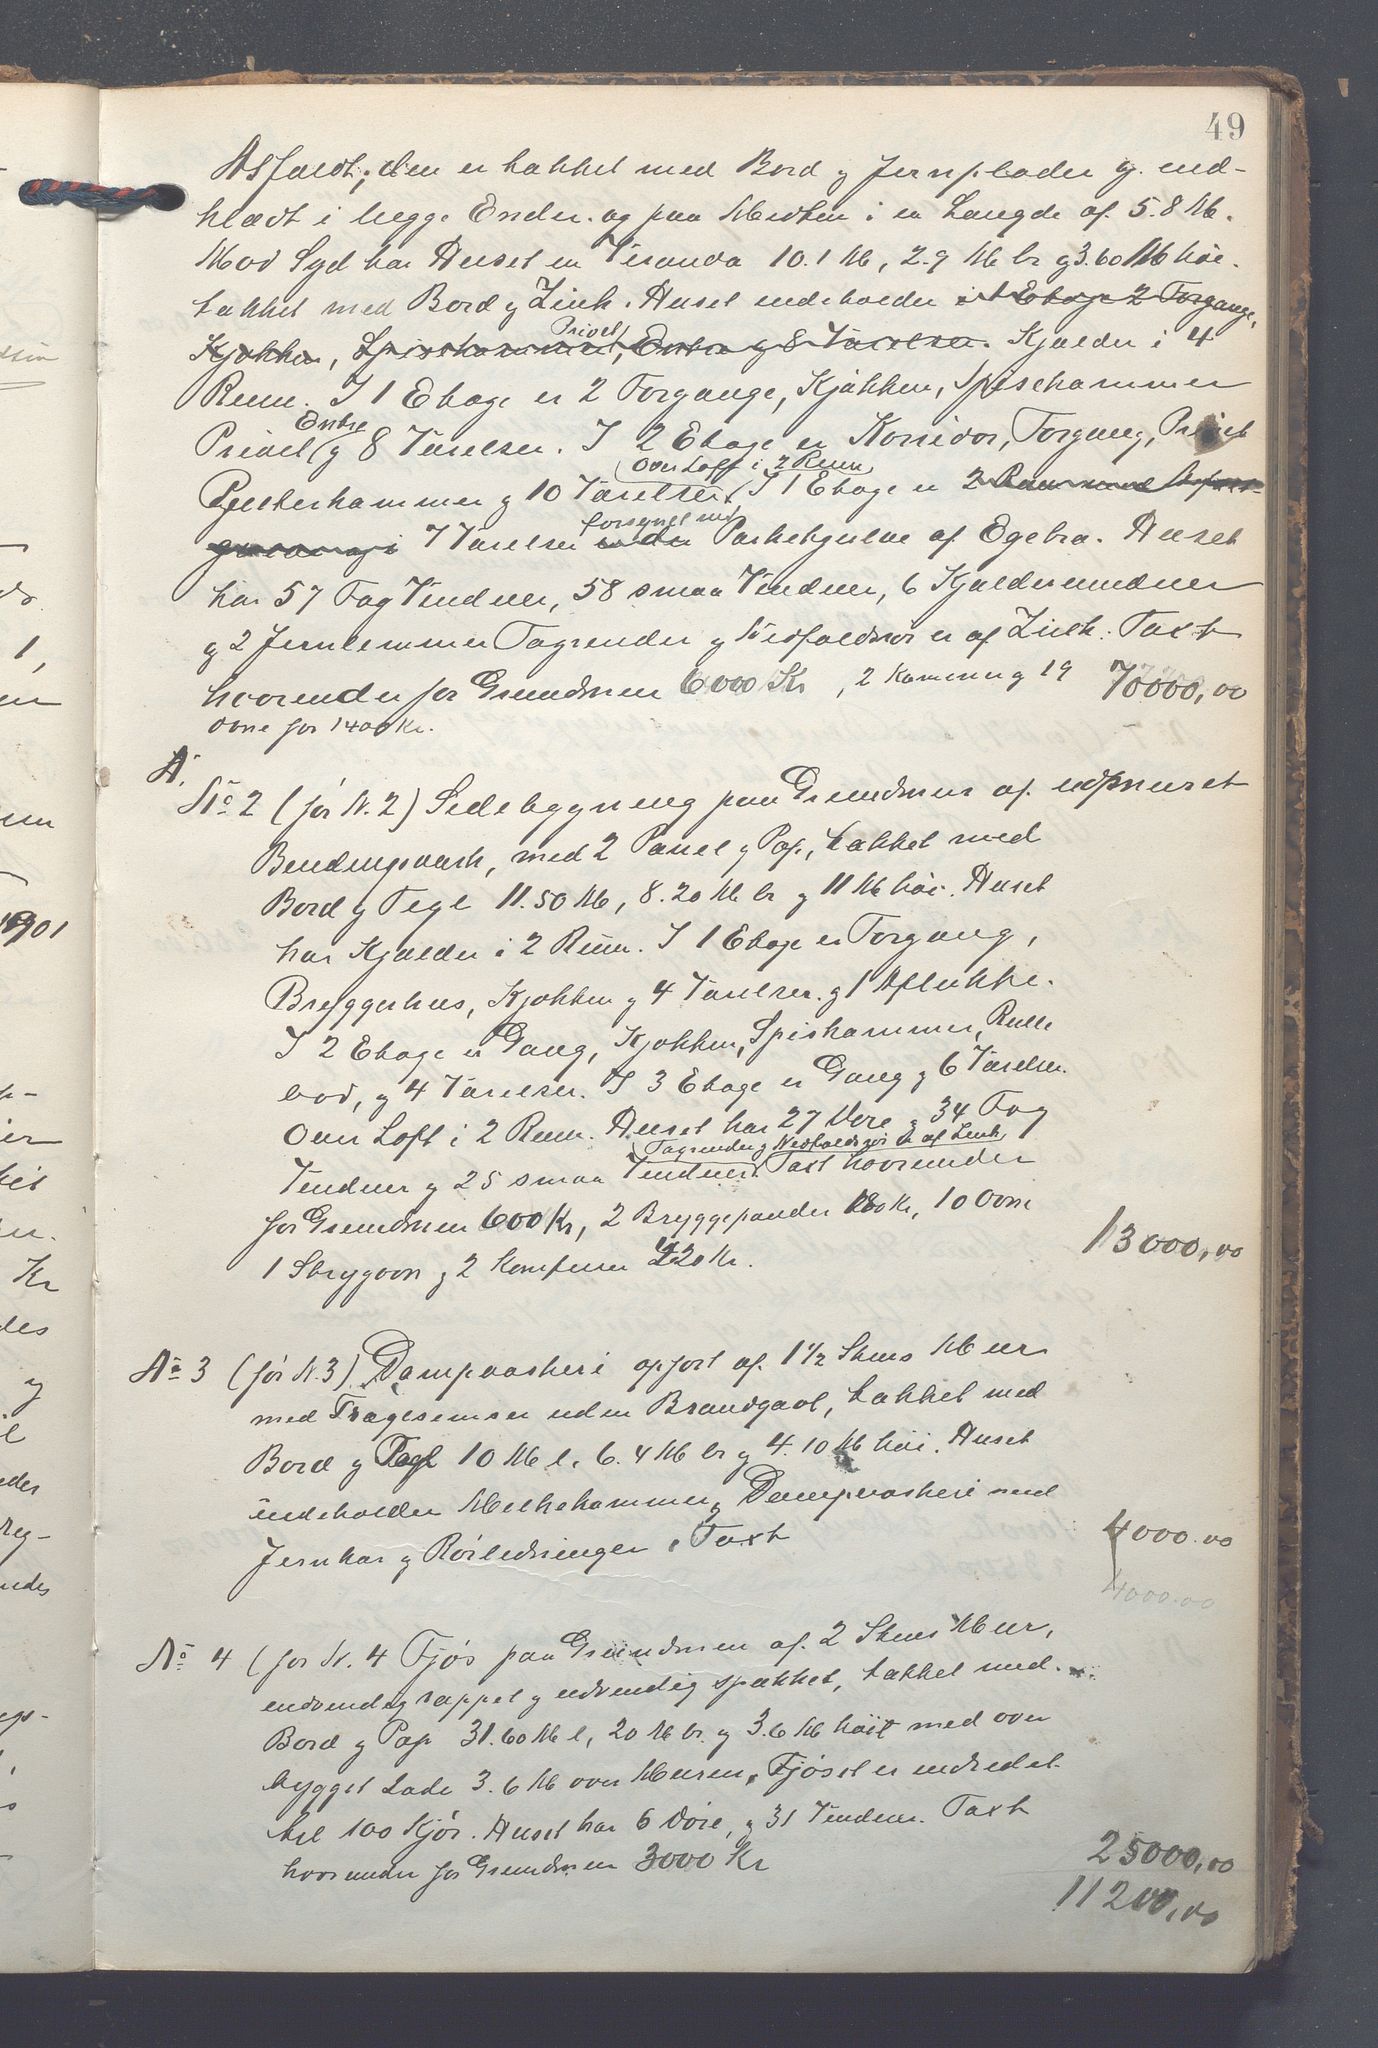 49
Asfaldt; den er takket med Bord og Jernplader og ind-
klædt i begge Ender og paa Midten i en Længde af 5.8 M.
Mod Syd har Huset en Veranda 10.1 M, 2.9 M br og 3.60 M høi.
takket med Bord og Zink. Huset indeholder i 1 Etage 2 Forgange,
Kjøkken, Spisekammer, Privet, Entre og 8 Værelser. Kjælder i 4
Rum. I 1 Etage er 2 Forgange, Kjøkken, Spisekammer
Entre
Privet og 8 Værelser. I 2 Etage er Korridor, Forgang, Privet
Over Loft i 2 Rum
Pulterkammer og 10 Værelser. I 1 Etage er 2 Rum med
forsynet med
7 Værelser Parketgulve af Egetræ. Huset
har 57 Fag Vinduer, 58 smaa Vinduer, 6 Kjældervinduer
og 2 Jernlemmer Tagrender og Nedfaldsrør er af Zink. Taxt
hvorunder for Grundmuren 6000 Kr, 2 Kaminer og 19 70000,00
ovne for 1400 Kr.
A.
No 2 (før N. 2) Sidebygning paa Grundmur af udmuret
Bindingsværk, med 2 Panel og Pap, takket med
Bord og Tegl 11.50 M, 8.20 M br og 11 M høi. Huset
har Kjælder i 2 Rum. I 1 Etage er Forgang,
Bryggerhus, Kjøkken og 4 Værelser. og 1 Aflukke.
I 2 Etage er Gang, Kjøkken, Spiskammer, Rulle
bod, og 4 Værelser. I 3 Etage er Gang og 6 Værelser.
Over Loft i 2 Rum. Huset har 27 Døre og 34 Fag
Tagrender og Nedfaldsrør er af Zink
Vinduer og 25 smaa Vinduer. Taxt hvorunder
for Grundmuren 600 Kr, 2 Bryggepander 180 Kr, 10 Ovne
1 Strygeovn og 2 Komfurer 420 Kr. 13000,00
No 3 (før N. 3) Dampvaskeri opført af 1 1/2 Stens Mur
med Trægesimser uden Brandgavl, takket med
Bord og Tegl 10 M l, 6.4 M br og 4.10 M høi. Huset
indeholder Melkekammer og Dampvaskeri med
Jernkar og Rørledninger. Taxt 4000.00
4000.00
No 4 (før N. 4 Fjøs paa Grundmur af 2 Stens Mur,
indvendig rappet og udvendig spækket, takket med
Bord og Pap 31.60 M l, 20 M br. og 3.6 M høit med over
bygget Lade 3.6 M over Muren. Fjøset er indredet
til 100 Kjør. Huset har 6 Døre, og 31 Vinduer. Taxt
hvorunder for Grundmuren 3000 Kr 25000,00
11200,00